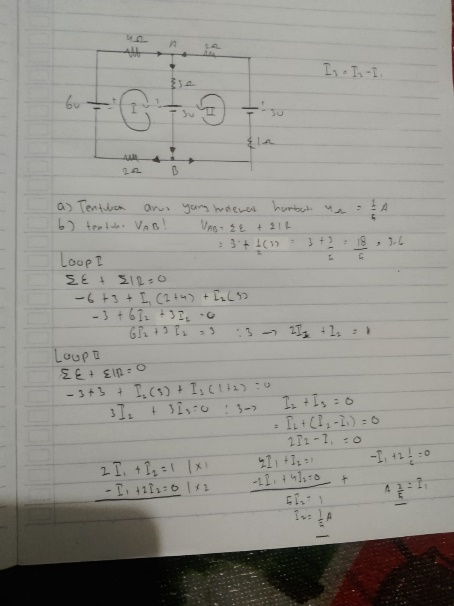 4Ω A 2Ω
I₃ = I₂ - I₁
3Ω
6v I 3v II 3v
1Ω
2Ω B
a) Tentukan arus yang melewati hambatan 4Ω =
b) tentukan VAB! VAB = ΣE + ΣIR
Loop I
ΣE + ΣIR = 0
-6 + 3 + I₁ (2+4) + I₂ (3)
-3 + 6I₁ + 3I₂ = 0
6I₁ + 3I₂ = 3 : 3 → 2I₁ + I₂ = 1
Loop II
ΣE + ΣIR = 0
-3 + 3 + I₂ (3) + I₃ (1+2) = 0
3I₂ + 3I₃ = 0 : 3 → I₂ + I₃ = 0
= I₂ + (I₂ - I₁) = 0
2I₂ - I₁ = 0
2I₁ + I₂ = 1 | x1
-I₁ + 2I₂ = 0 | x2
2I₁ + I₂ = 1
-2I₁ + 4I₂ = 0 +
5I₂ = 1
I₂ = 1/5 A
-I₁ + 2 1/5 = 0
2/5 = I₁